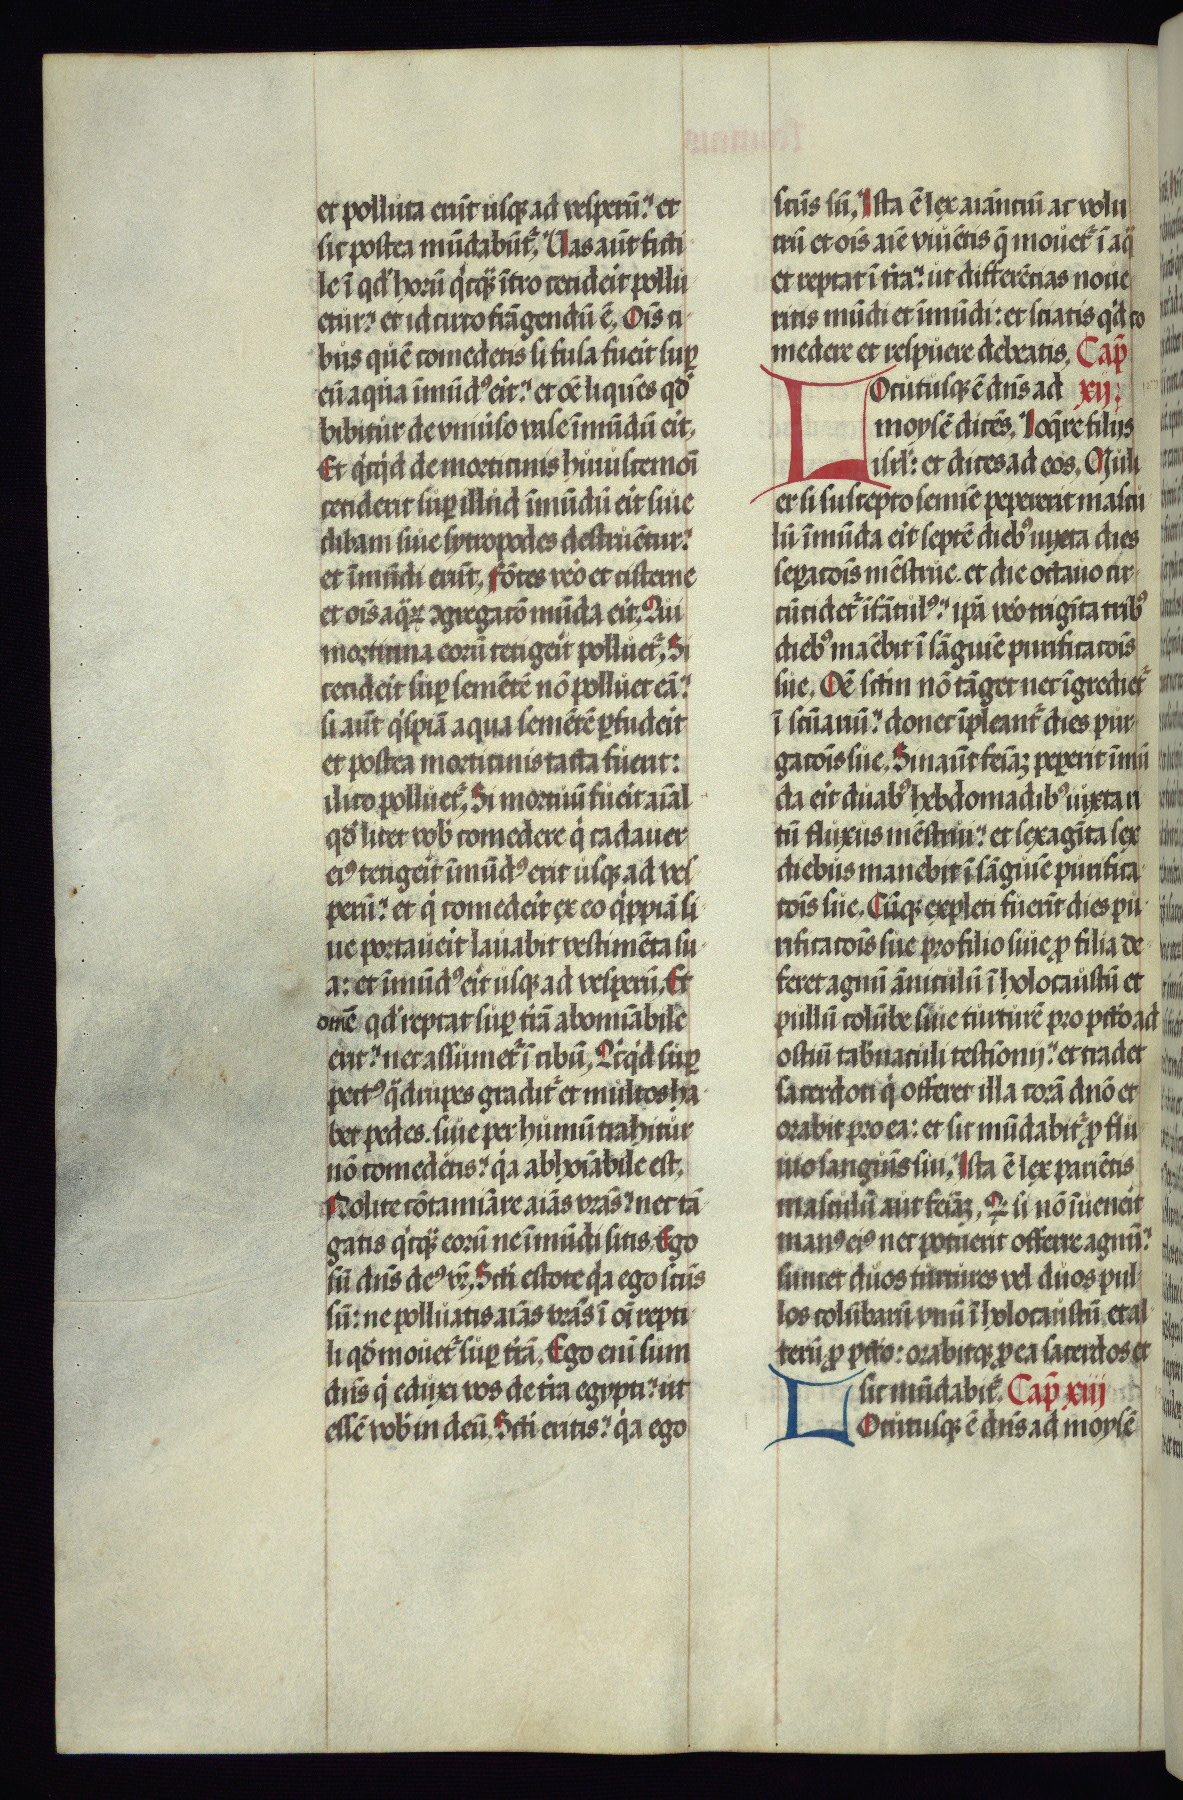 et polluta erūt usq; ad vesperū? et
sic postea mūdabūt᷑. Uas aūt ficti
le ī qd horū q̇cq̄ ītro cecideīt pollu
etur? et idcirco frāgendū ē. Oīs ci
bus quē comedetis si fusa fueīt suꝑ
eū aqua īmūdꝰ eīt? et oē liquēs qd̓
bibitur de vniuso vase īmūdū eīt.
Et q̇cq̇d de morticinis huiuscemōi
ceciderit suꝑ illud īmūdū eīt siue
clibani siue cytropedes destruētur?
et īmūdi erūt. fōtes vēo et cisterne
et oīs aq̄ꝝ ꝯgregatō mūda eīt. Qui
morticina eorū tetigeīt polluet᷑. Si
cecideīt suꝑ semētē nō polluet eā?
si aūt q̇spiā aqua semētē ꝑfudeīt
et postea morticinis tacta fueīt:
ilico polluet᷑. Si mortuū fueīt aīal
qd̓ licet vob̄ comedere q̇ cadauer
eiꝰ tetigeīt īmūdꝰ erit usq; ad ves
perū? et q̇ comedeīt ex eo q̇ppiā si
ue portaueīt lauabit vestimēta su
a: et īmūdꝰ eīt usq; ad vesperū. Et
omē qd̓ reptat suꝑ tr̄ā abomīabile
erit? nec assumet᷑ ī cibū. Q̇cq̇d suꝑ
pectꝰ q̄drupes gradit᷑ et multos ha
bet pedes. siue per humū trahitur
nō comedetis? q̇a abhoīabile est.
Nolite cōtamīare aīas vrās? nec tā
gatis q̇cq̄ eorū ne īmūdi sitis. Ego
sū dn̄s deꝰ vr̄. Scti estote q̇a ego sctūs
sū: ne polluatis aīas vrās ī oī repti
li qd̓ mouet᷑ suꝑ tr̄ā. Ego enī sum
dn̄s q̇ eduxi vos de tr̄a egypti? ut
essē vob̄ in deū. Scti eritis? q̇a ego
sctūs sū. Ista ē lex aīantiū ac volu
crū et oīs aīe viuētis q̄ mouet᷑ ī aq̄
et reptat ī tr̄a? ut differētias noue
ritis mūdi et īmūdi: et sciatis qd̓ co
medere et respuere debeatis. Cap̄
Locutusq; ē dn̄s ad xij.
moysē dicēs. Loq̄re filijs
isrl̓: et dices ad eos. Muli
er si suscepto semīe pepererit mascu
lū īmūda eīt septē diebꝰ iuxta dies
seꝑatōis mēstrue. et die octauo cir
cūcidet᷑ īfātulꝰ? ipā vēo trigīta tribꝰ
diebꝰ maēbit ī sāguīe purificatōis
sue. Oē sctm nō tāget nec īgrediet᷑
ī sctūariū? donec īpleant᷑ dies pur
gatōis sue. Sin aūt feīaꝫ peperit īmū
da eīt duabꝰ hebdomadibꝰ iuxta ri
tū fluxus mēstrui? et sexagīta sex
diebus manebit ī sāguīe purifica
tōis sue. Cūq; expleti fuerīt dies pu
rificatōis sue pro filio siue ꝓ filia de
feret agnū āniculū ī holocaustū et
pullū colūbe siue turturē pro pctō ad
ostiū tab̄naculi testīonij? et tradet
sacerdoti q̇ offeret illa corā dn̄o et
orabit pro ea: et sic mūdabit᷑ ꝓ flu
uio sanguīs sui. Ista ē lex pariētis
masculū aut feīaꝫ. Q; si nō īueneīt
manꝰ eiꝰ nec potuerit offerre agnū?
sumet duos turtures vel duos pul
los colūbarū vnū ī holocaustū et al
terū ꝓ pctō: orabitq; ꝓ ea sacerdos et
sic mūdabit᷑. Cap̄ xiij
Locutusq; ē dn̄s ad moysē